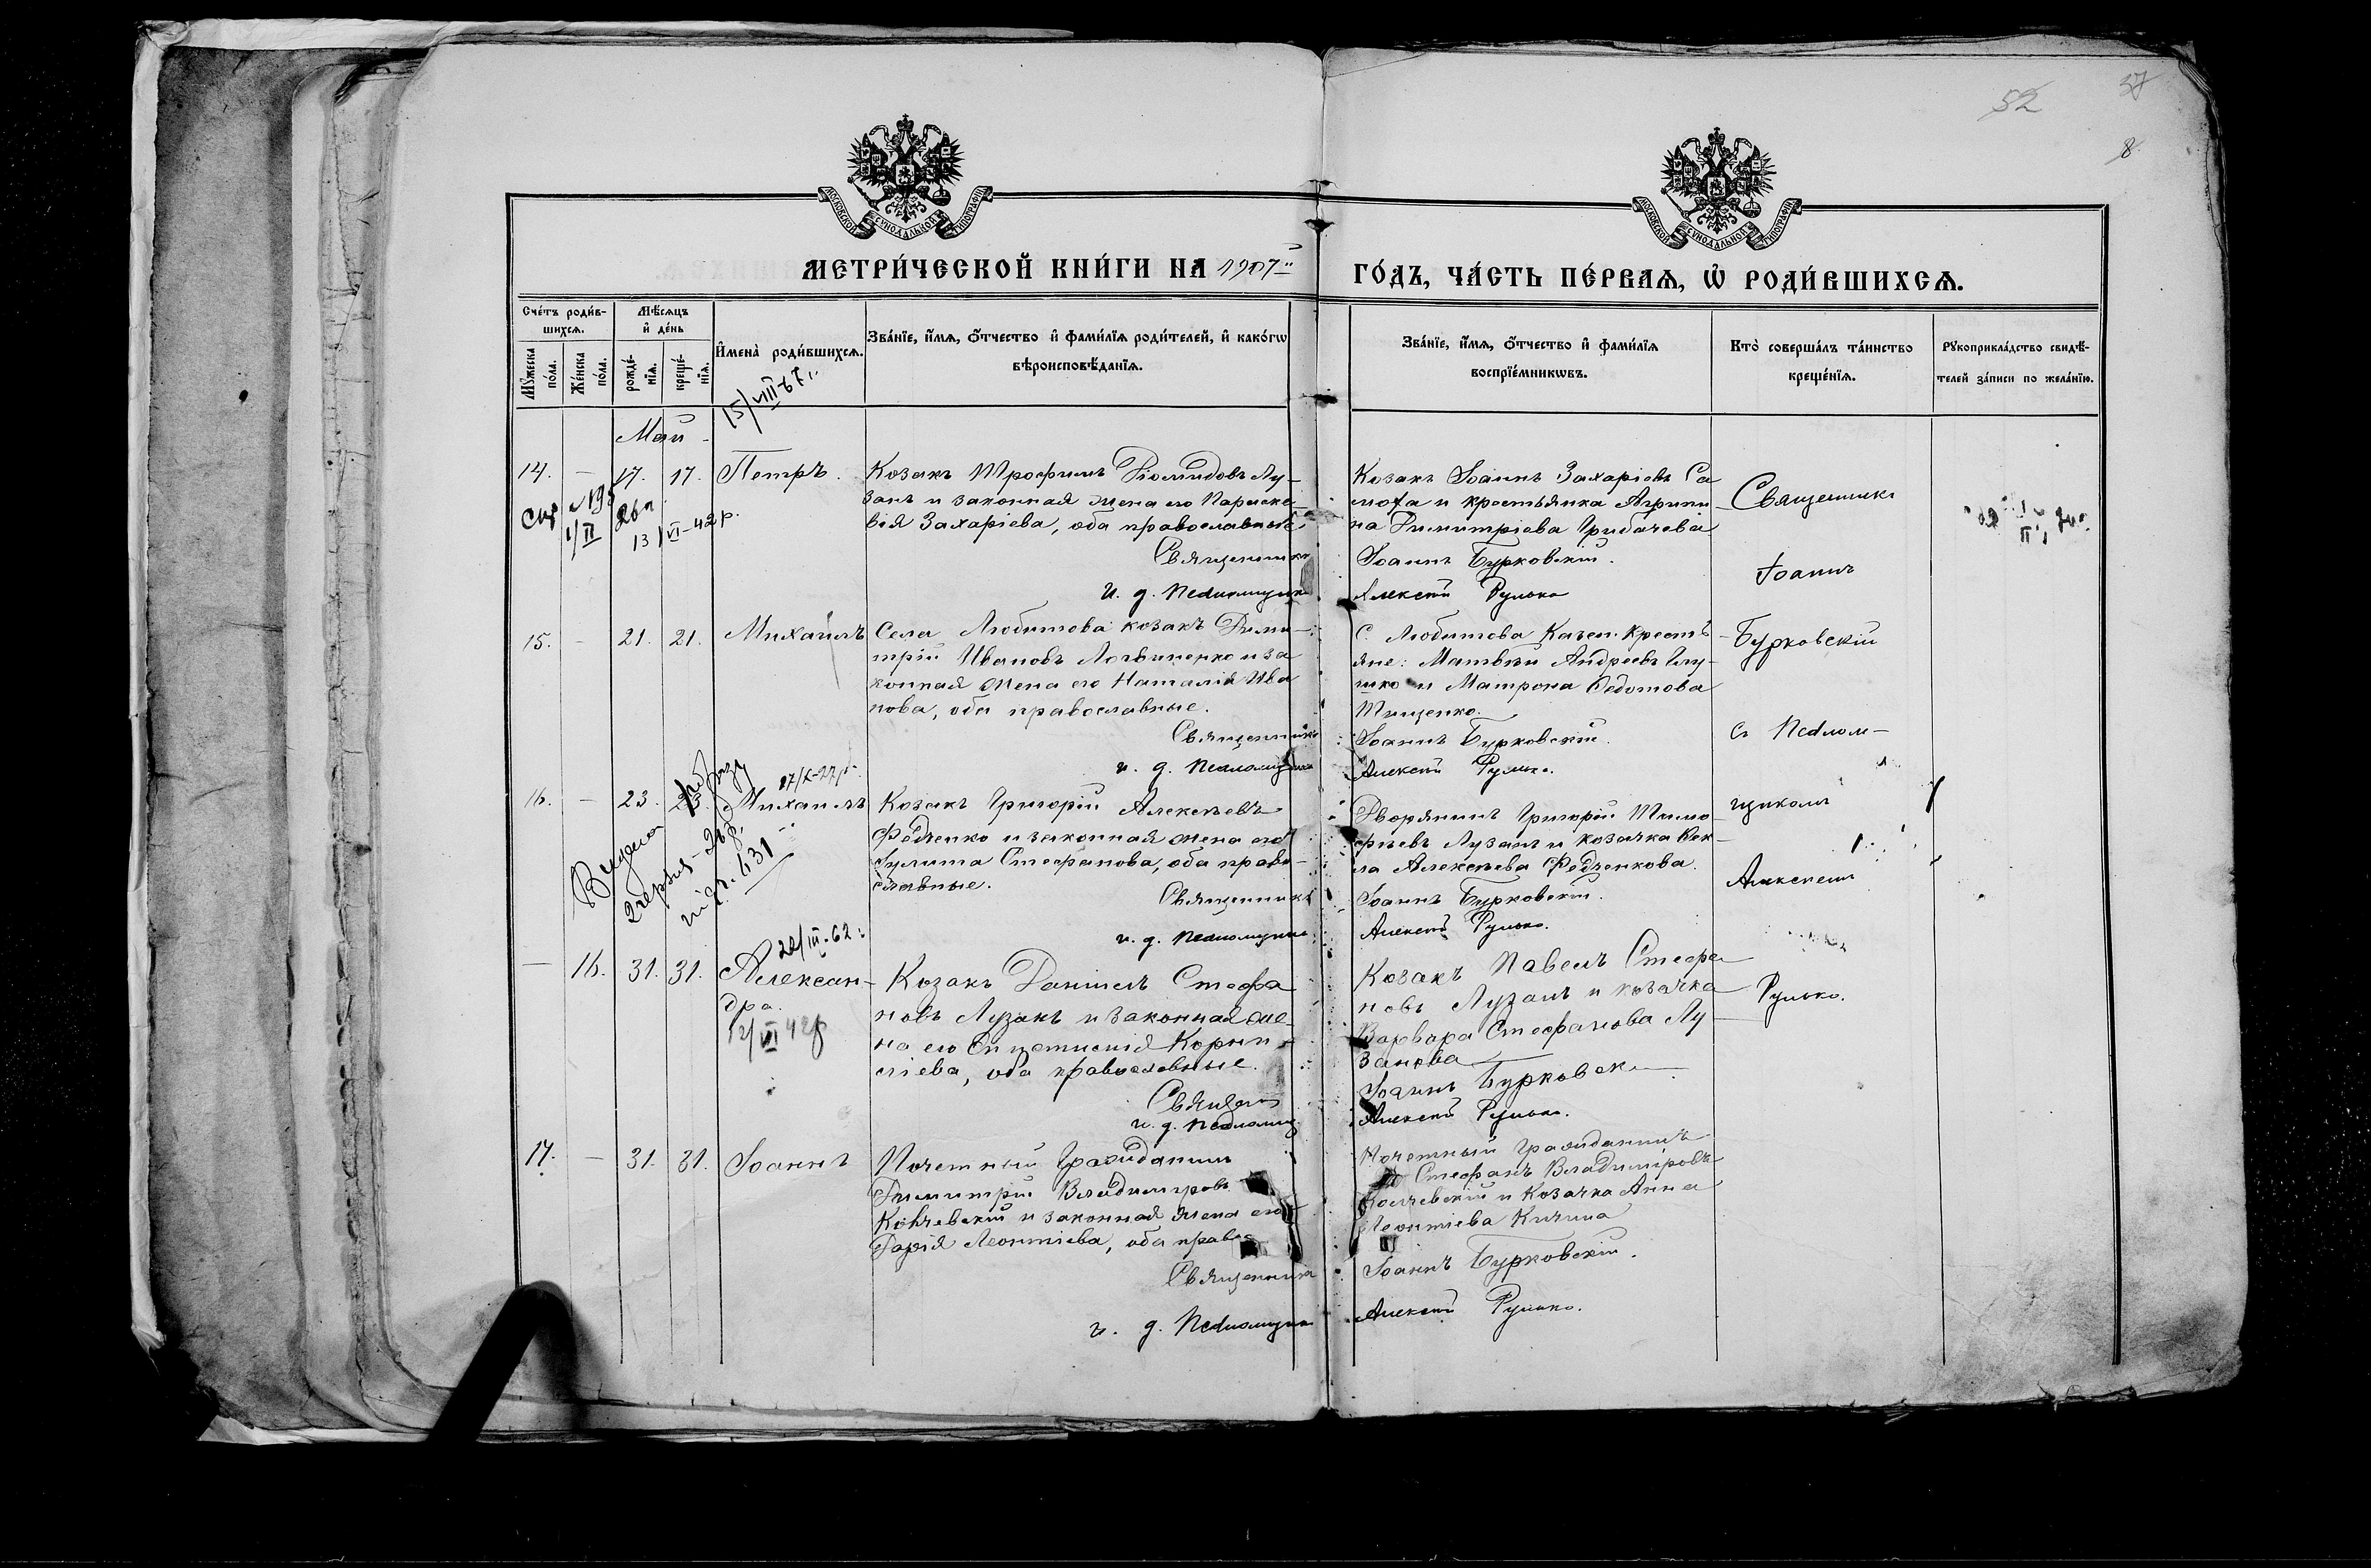 52
37
8
МОСКОВСКОЙ СУНОДАЛЬНОЙ ТИПОГРАФІИ
МОСКОВСКОЙ СУНОДАЛЬНОЙ ТИПОГРАФІИ
МЕТРИ́ЧЕСКОЙ КНИ́ГИ НА 1907й ГО́ДЪ, ЧА́СТЬ ПЕ́РВАѦ, Ѡ҆ РОДИ́ВШИХСѦ.
Сче́тъ роди́в-
шихсѧ.
Мꙋ́жеска
по́ла.
Же́нска
по́ла.
Мѣ́сѧцъ
и҆ де́нь
рожде́-
нїѧ.
креще́-
нїѧ.
И҆мена̀ роди́вшихсѧ.
Зва́нїе, и҆́мѧ, ѻ҆́тчество и҆ фами́лїѧ роди́телей, и҆ како́гѡ
вѣроисповѣ́данїѧ.
Зва́нїе, и҆́мѧ, ѻ҆́тчество и҆ фами́лїѧ
воспрїе́мникѡвъ.
Кто̀ соверша́лъ та́инство
креще́нїѧ.
Рꙋкоприкла́дство свидѣ́-
телей за́писи по жела́нїю.
15/VIII-67г.
Май
14. — 17. 17. Петръ.
Козакъ Трофимъ Діомидовъ Лу-
занъ и законная жена его Параске-
вія Захаріева, оба православные
Священникъ
и. д. псаломщика
Козакъ Іоаннъ Захаріевъ Са
моха и крестьянка Агрипи-
на Димитріева Грибачева
Іоаннъ Бурковскій.
Алексѣй Рулько
1/II
13/VI-42р.
15. — 21. 21. Михаилъ
Села Любитова козакъ Дими-
трій Ивановъ Логвиненко и за
конная жена его Наталія Ива
нова, оба православные.
Священникъ
и. д. псаломщика
С. Любитова Казен. кресть-
яне: Матвѣй Андреевъ Глу-
шко и Матрона Федотова
Тищенко.
Іоаннъ Бурковскій.
Алексѣй Рулько.
27/X-27р.
16. — 23. 23. Михаилъ
Козакъ Григорій Алексѣевъ
Федченко и законная жена его
Іулита Стефанова, оба право-
славные.
Священникъ
и. д. псаломщика
Дворянинъ Григорій Тимо-
фѣевъ Лузанъ и козачка Фек-
ла Алексѣева Федченкова.
Іоаннъ Бурковскій.
Алексѣй Рулько.
Видана
431
22/III-62г.
— 16. 31. 31. Алексан-
дра.
12/VI 42р
Козакъ Даніилъ Стефа
новъ Лузанъ и законная же-
на его Епистимія Корни-
ліева, оба православные.
Священ
и. д. псаломщ.
Козакъ Павелъ Стефа-
новъ Лузанъ и козачка
Варвара Стефанова Лу-
занова
Іоаннъ Бурковск
Алексѣй Рулько.
17. — 31. 31. Іоаннъ
Почетный Гражданинъ
Димитрій Владиміровъ
Колчевскій и законная жена его
Дарія Леонтіева, оба право
Священника
и. д. псаломщика
Почетный Гражданинъ
Стефанъ Владиміровъ
Колчевскій и козачка Анна
Леонтіева Кичина
Іоаннъ Бурковскій.
Алексѣй Рулько.
Священникъ
Іоаннъ
Бурковскій
съ псалом-
щикомъ
Алексѣемъ
Рулько.